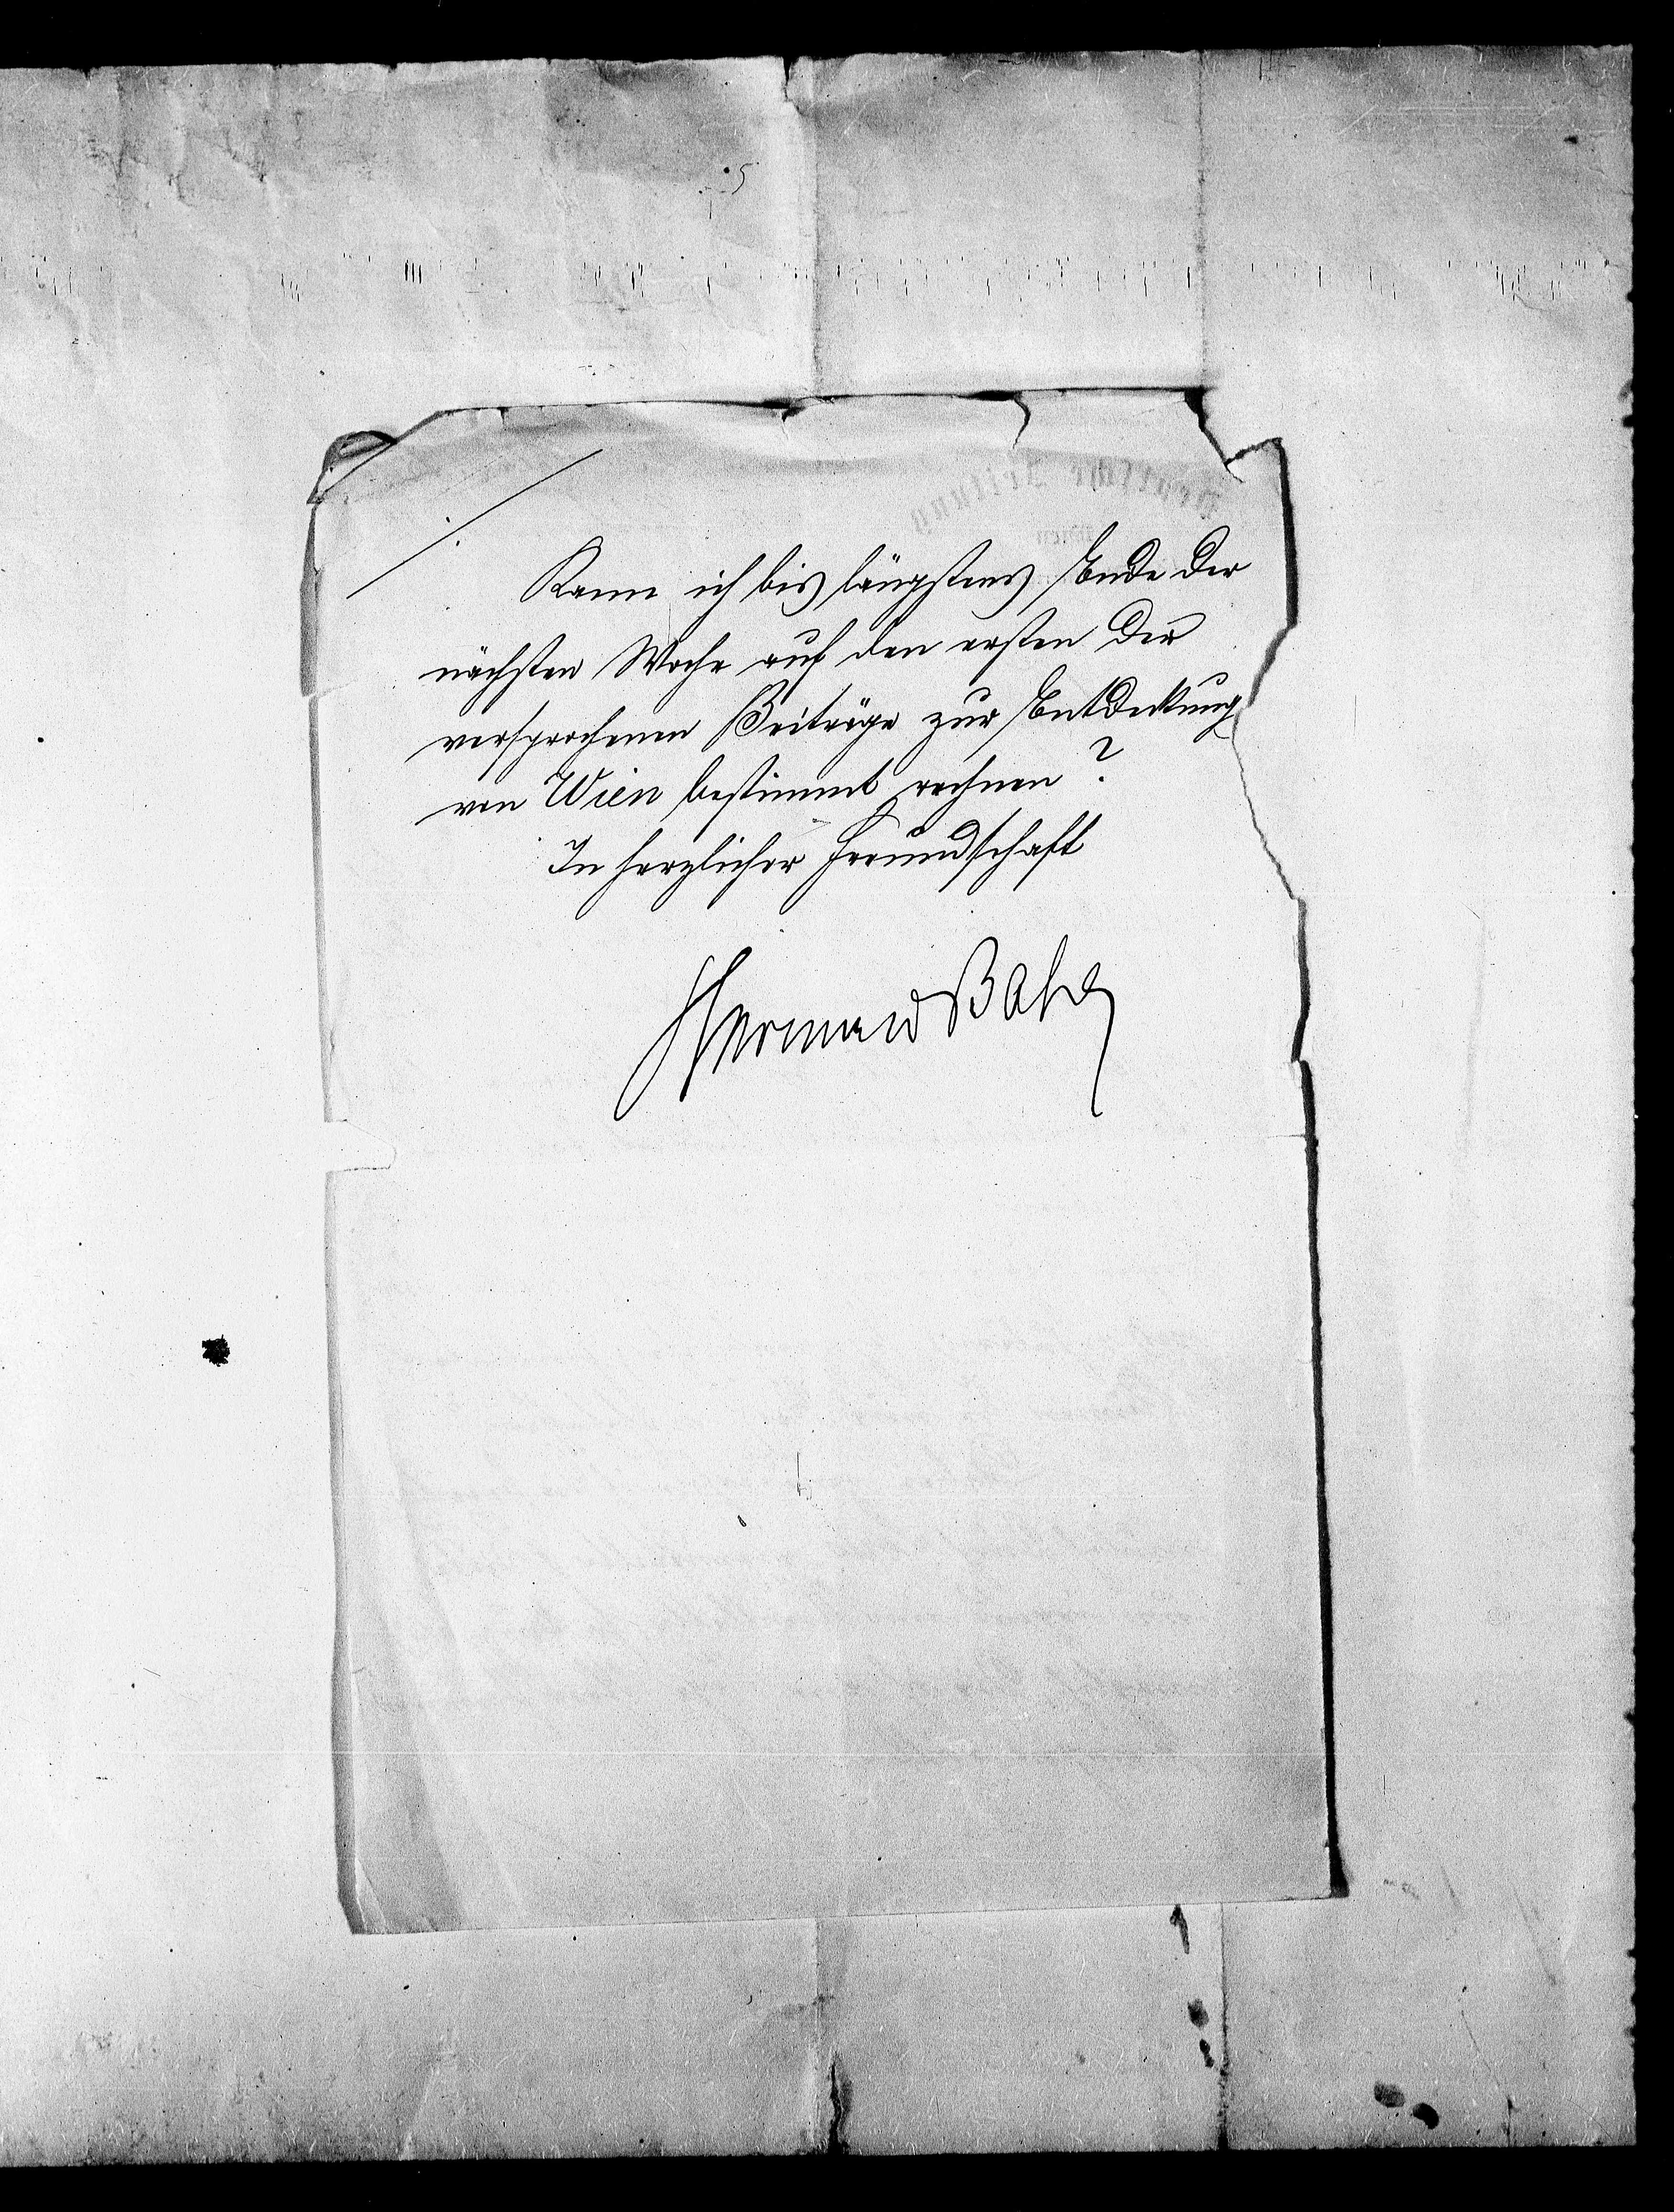 Kann ich bis längstens Ende der
nächsten Woche auf den ersten der
versprochenen Beiträge zur Entdeckung
von Wien bestimmt rechnen?
In herzlicher Freundschaft
Hermann Bahr